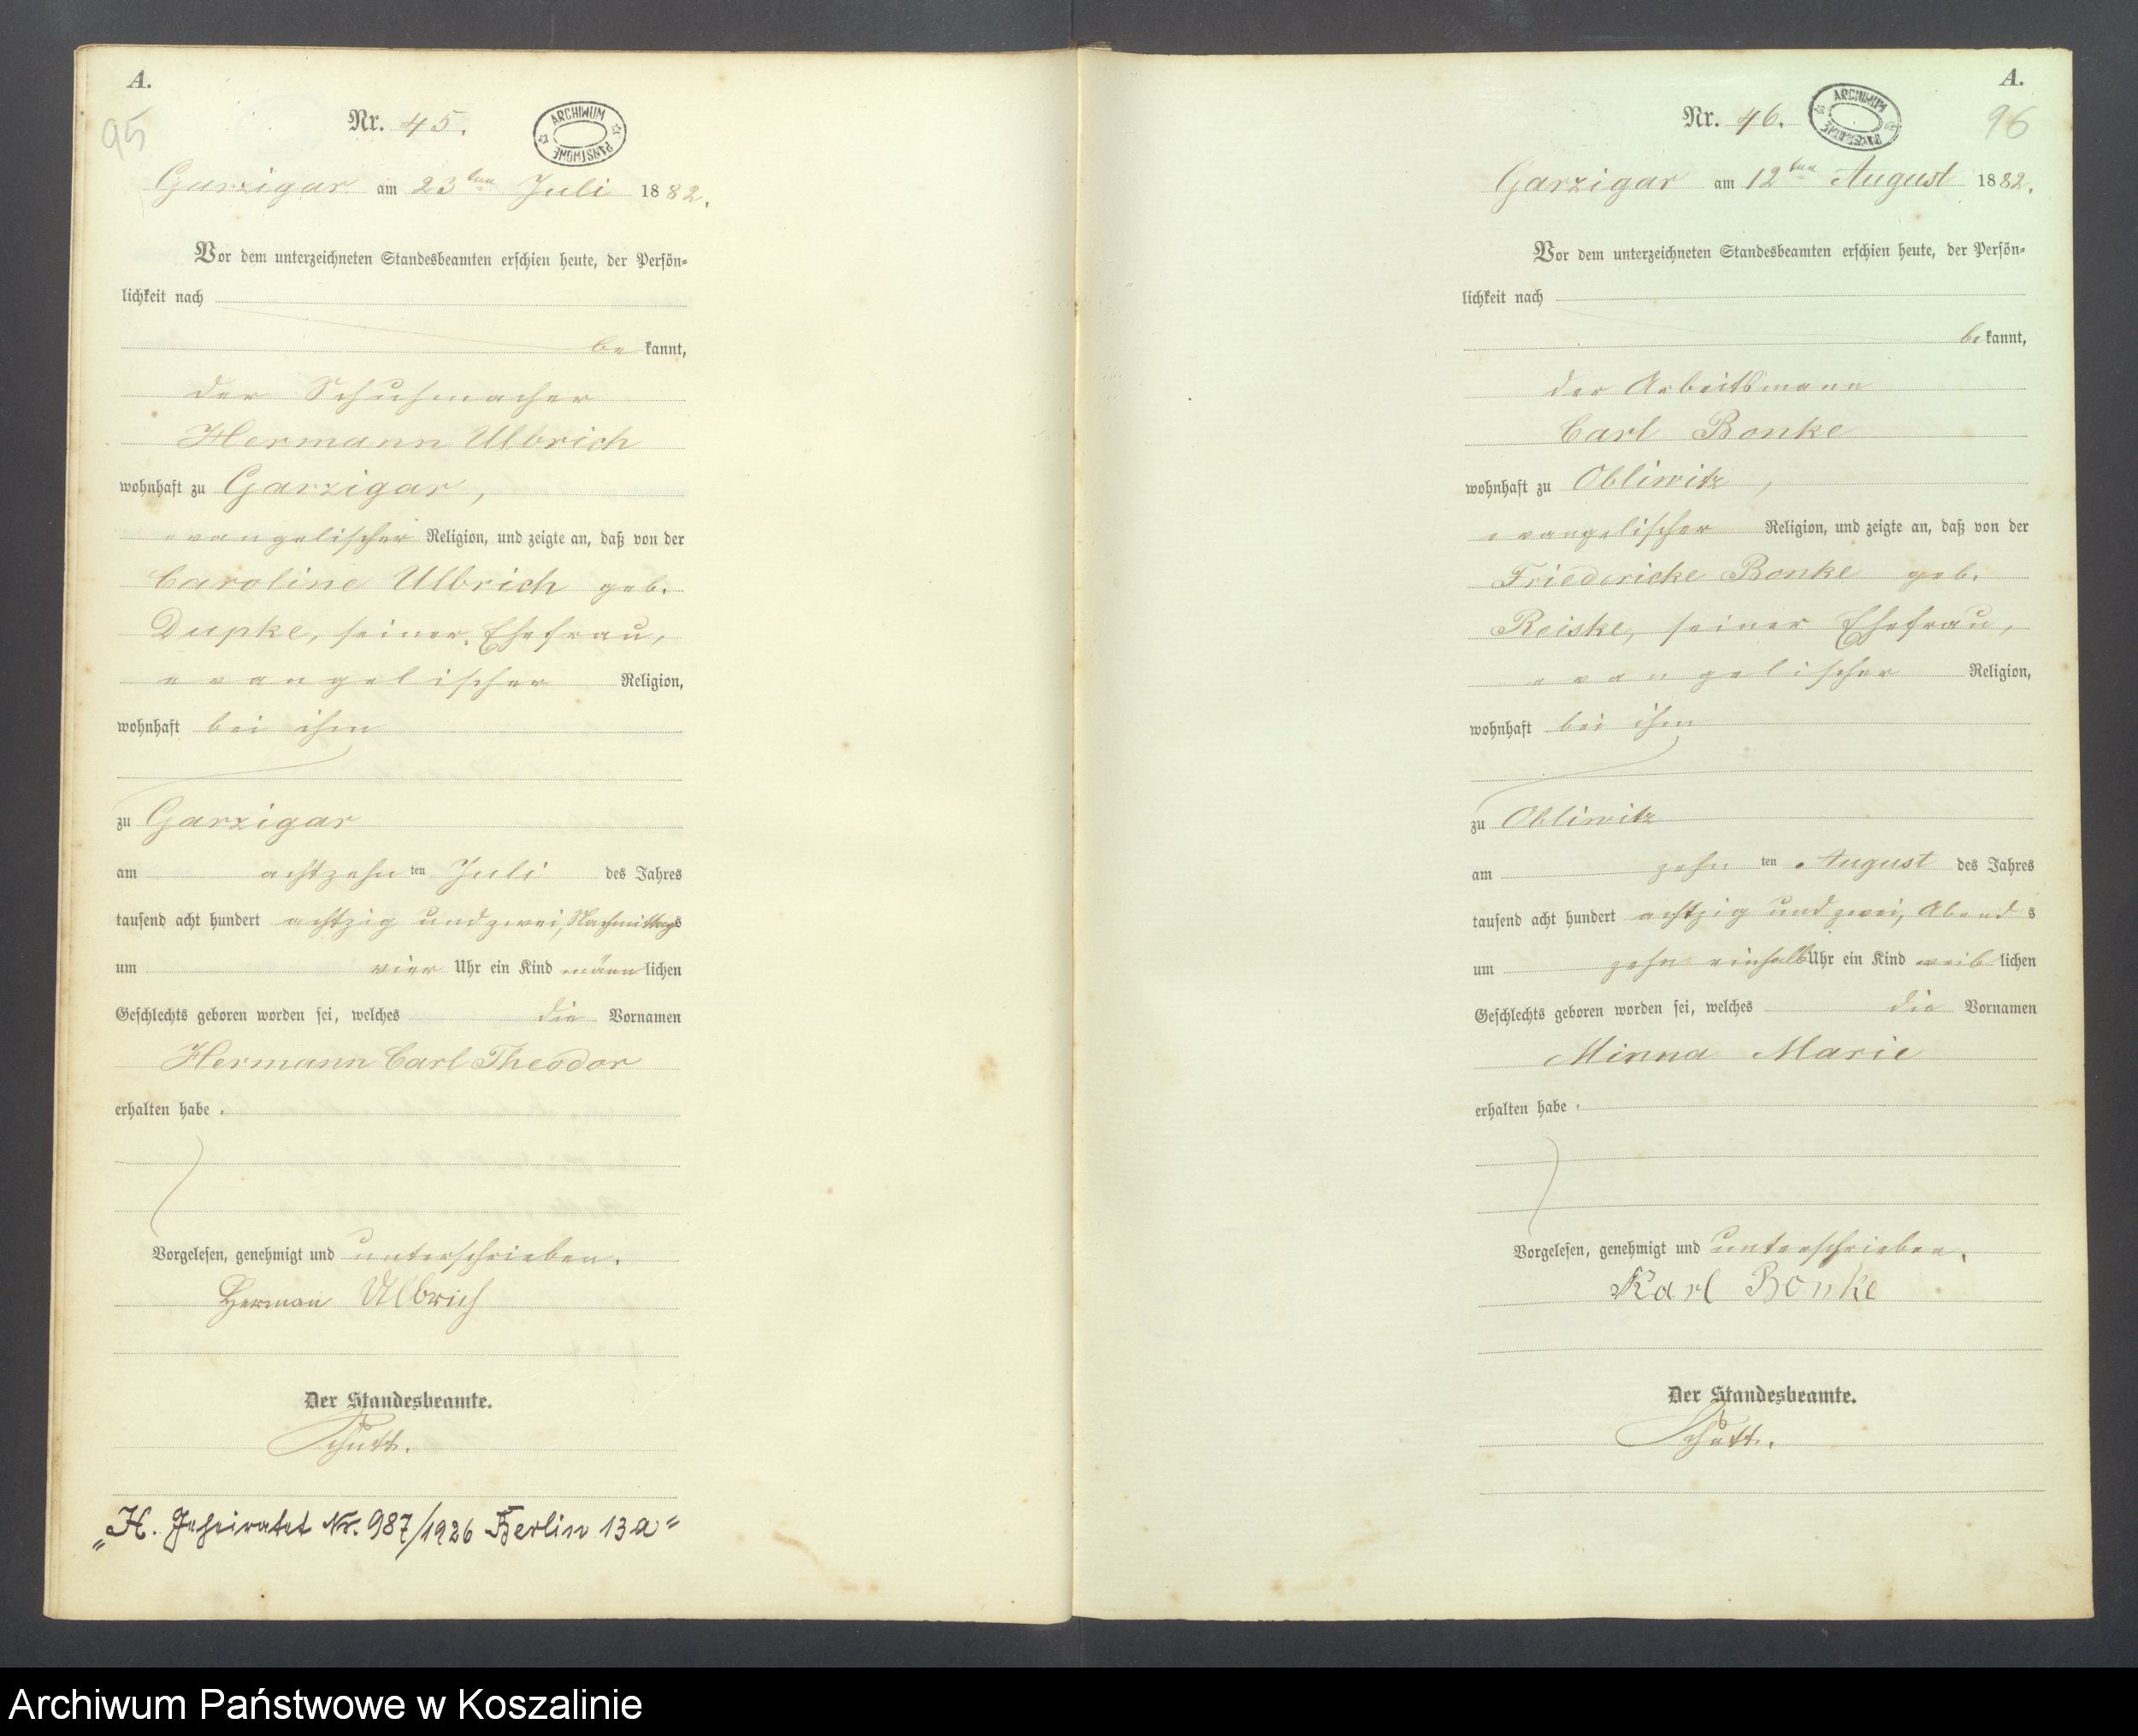 A.
95
Nr. 45.
ARCHIWUM PAŃSTWOWE
Garzigar am 23ten Juli 1882.
Vor dem unterzeichneten Standesbeamten erschien heute, der Persön-
lichkeit nach
be kannt,
der Schuhmacher
Hermann Ulbrich
wohnhaft zu Garzigar,
evangelischer Religion, und zeigte an, daß von der
Caroline Ulbrich geb.
Dupke, seiner Ehefrau,
evangelischer Religion,
wohnhaft bei ihm
zu Garzigar
am achtzehn ten Juli des Jahres
tausend acht hundert achtzig und zwei, Nachmittags
um vier Uhr ein Kind männlichen
Geschlechts geboren worden sei, welches die Vornamen
Hermann Carl Theodor
erhalten habe.
Vorgelesen, genehmigt und unterschrieben.
Herman Ulbrich
Der Standesbeamte.
Schütt.
„H. Geheiratet Nr. 987/1926 Berlin 13a"
A.
96
Nr. 46.
ARCHIWUM PAŃSTWOWE
Garzigar am 12ten August 1882.
Vor dem unterzeichneten Standesbeamten erschien heute, der Persön-
lichkeit nach
be kannt,
der Arbeitsmann
Carl Bonke
wohnhaft zu Obliwitz,
evangelischer Religion, und zeigte an, daß von der
Friedericke Bonke geb.
Reiske, seiner Ehefrau,
evangelischer Religion,
wohnhaft bei ihm
zu Obliwitz
am zehn ten August des Jahres
tausend acht hundert achtzig und zwei, Abend s
um zehn einhalb Uhr ein Kind weib lichen
Geschlechts geboren worden sei, welches die Vornamen
Minna Marie
erhalten habe.
Vorgelesen, genehmigt und unterschrieben.
Karl Bonke
Der Standesbeamte.
Schütt.
Archiwum Państwowe w Koszalinie